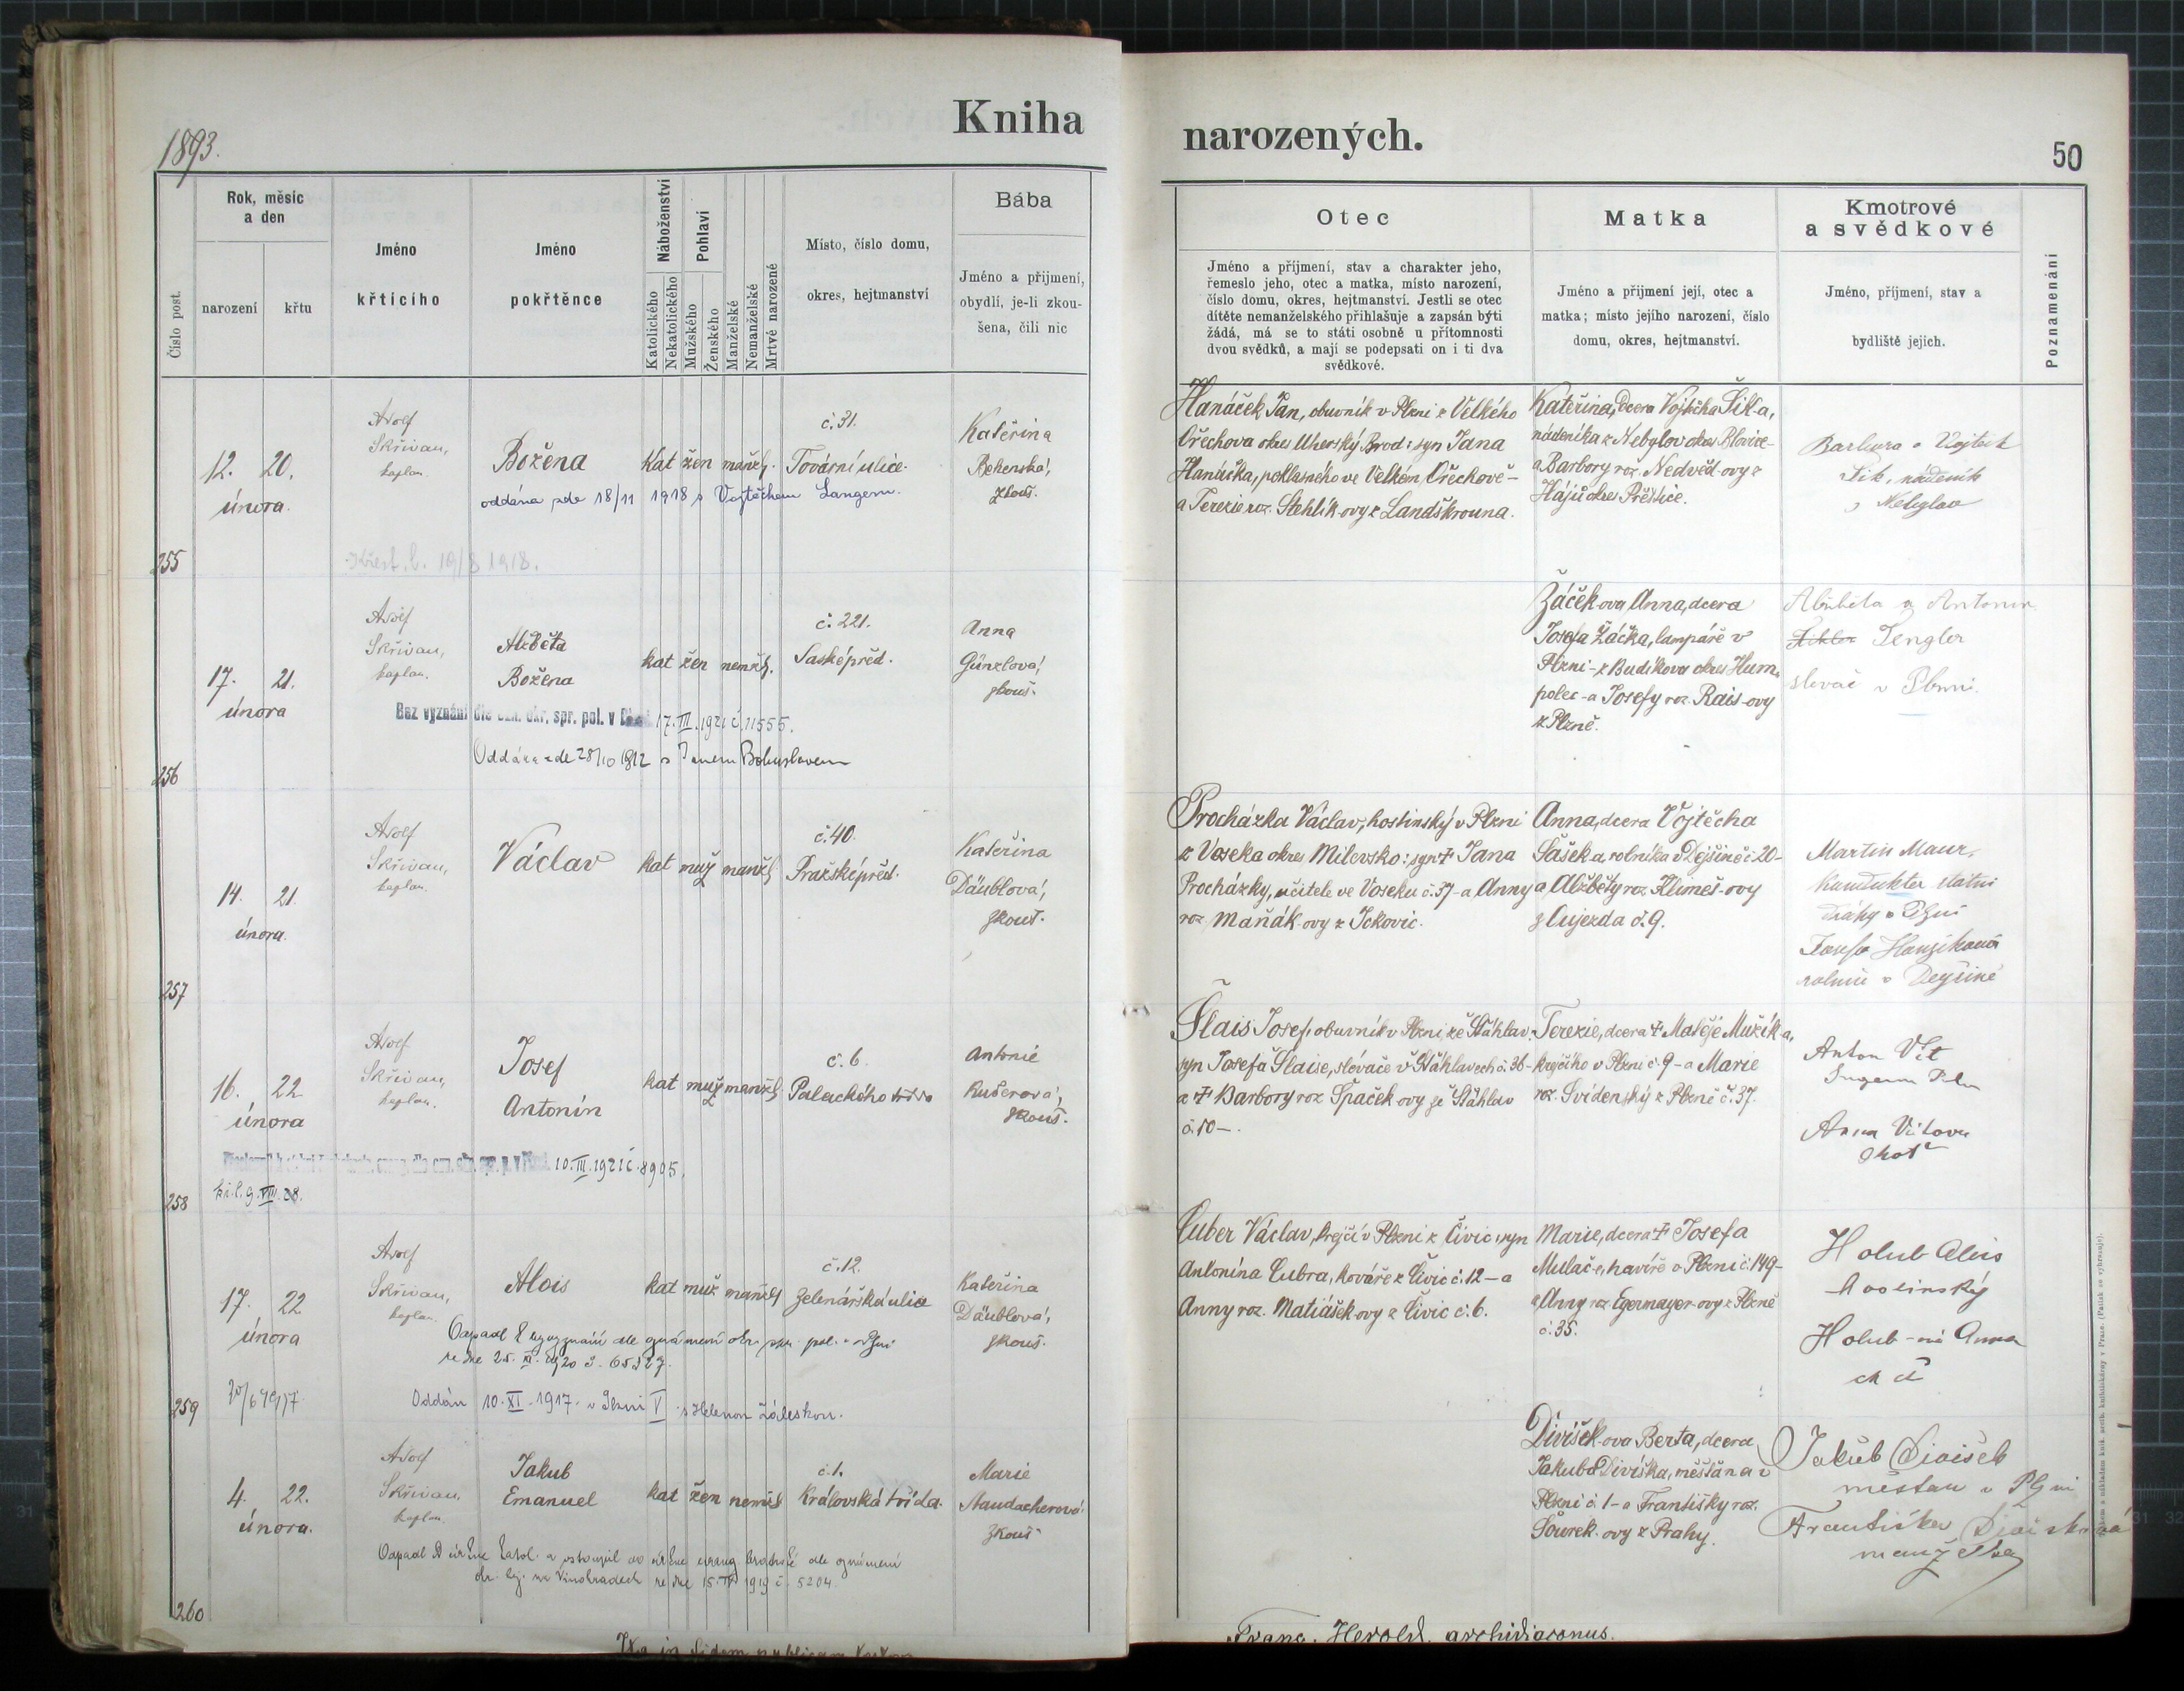 1893.
Kniha narozených.
50
Číslo post.
Rok, měsíc
a den
narození
křtu
Jméno
křtícího
Jméno
pokřtěnce
Náboženství
Katolického
Nekatolického
Pohlaví
Mužského
Ženského
Manželské
Nemanželské
Mrtvé narozené
Místo, číslo domu,
okres, hejtmanství
Bába
Jméno a příjmení,
obydlí, je-li zkou-
šena, čili nic
Otec
Jméno a příjmení, stav a charakter jeho,
řemeslo jeho, otec a matka, místo narození,
číslo domu, okres, hejtmanství. Jestli se otec
dítěte nemanželského přihlašuje a zapsán býti
žádá, má se to státi osobně u přítomnosti
dvou svědků, a mají se podepsati on i ti dva
svědkové.
Matka
Jméno a příjmení její, otec a
matka; místo jejího narození, číslo
domu, okres, hejtmanství.
Kmotrové
a svědkové
Jméno, příjmení, stav a
bydliště jejich.
Poznamenání
255
12. 20.
února.
Adolf
Skřivan,
kaplan.
Božena
kat žen manžs.
č. 31.
Tovární ulice.
Kateřina
zkouš.
oddána zde 18/11 1918 s Vojtěchem Langem.
Křest. l. 19/8 1918.
Hanáček Jan, obuvník v Plzni z Velkého
Ořechova okres Uherský Brod: syn Jana
Hanáčka, ve Velkém Ořechově -
a Terezie roz. Stehlík-ovy z Landškrouna.
Kateřina, dcera Vojtěcha Šik-a,
nádeníka z Nebylov okres Blovice-
a Barbory roz. Nedvěd-ovy z
Hájů okres Přeštice.
Barbora a Vojtěch
Šik, nádeník
z Nebylov
256
17. 21.
února
Adolf
Skřivan,
kaplan.
Alžběta
Božena
kat žen nemžs.
č. 221.
Saské před.
Anna
Günzlová,
zkouš.
Bez vyznání dle ozn. okr. spr. pol. v Plzni 17. III. 1921 č. 11555.
Oddána zde 28/10 1912 s Janem Bohuslavem
Žáček-ova Anna, dcera
Josefa Žáčka, lampáře v
Plzni - z Budíkova okres Hum-
polec - a Josefy roz. Rais-ovy
z Plzně.
Alžběta a Antonín
Tengler
slevač v Plzni.
257
14. 21.
února.
Adolf
Skřivan,
kaplan.
Václav
kat muž manžs
č. 40.
Pražské před.
Kateřina
Däublová,
zkouš.
Procházka Václav, hostinský v Plzni
z Voseka okres Milevsko: syn † Jana
Procházky, učitele ve Voseku č. 37 - a Anny
roz. Maňák-ovy z Jckovic.
Anna, dcera Vojtěcha
Šašek-a, rolníka v Dejšině č. 20-
a Alžběty roz. Klimeš-ovy
z Aujezda č. 9.
Martin Maur,
konduktér státní
dráhy v Plzni
Josefa Hanzíková
rolnice v Dejšině
258
16. 22
února
Adolf
Skřivan,
kaplan.
Josef
Antonín
kat muž manžs
č. 6.
Palackého třída
Antonie
Kučerová,
zkouš.
10. III. 1921 č. 8905.
kř. l. 9. VIII. 28.
Šlais Josef, obuvník v Plzni, ze Šťáhlav,
syn Josefa Šlaise, slévače v Šťáhlavech č. 36-
a † Barbory roz. Špaček-ovy ze Šťáhlav
č. 10 -.
Terezie, dcera † Matěje Mužík-a,
krejčího v Plzni č. 9 - a Marie
roz. Svídenský z Plzně č. 37.
Anton Vít
Anna Vítova
choť
259
17. 22
února
Adolf
Skřivan,
kaplan.
Alois
kat muž manžs
č. 12.
Zelenářská ulice
Kateřina
Däublová,
zkouš.
Odpadl k bezvyznání dle oznámení okr. spr. pol. v Plzni
ze dne 25. XI. 1920 č. 65327.
20/6 1917.
Oddán 10. XI. 1917. v Plzni V s Helenou Záleskou.
Cuber Václav, krejčí v Plzni z Čivic, syn
Antonína Cubra, kováře z Čivic č. 12 - a
Anny roz. Matiášek-ovy z Čivic č. 6.
Marie, dcera † Josefa
Mulač-e, havíře v Plzni č. 149-
a Anny roz. Egermayer-ovy z Plzně
č. 35.
Holub Alois
hostinský
Holub-ná Anna
choť
260
4. 22.
února.
Adolf
Skřivan,
kaplan.
Jakub
Emanuel
kat žen nemžs
č. 1.
Královská třída.
Marie
Naudacherová
zkouš
Odpadl od církve katol. a vstoupil do církve evang. bratrské dle oznámení
okr. hej. na Vinohradech ze dne 15. IV 1919 č. 5204.
Divíšek-ova Berta, dcera
Jakuba Divíška, měšťana v
Plzni č. 1 - a Františky roz.
Šourek-ovy z Prahy.
Jakub Divíšek
měšťan v Plzni
Františka Divíšková
manželka
Franc. Herold, archidiaconus.